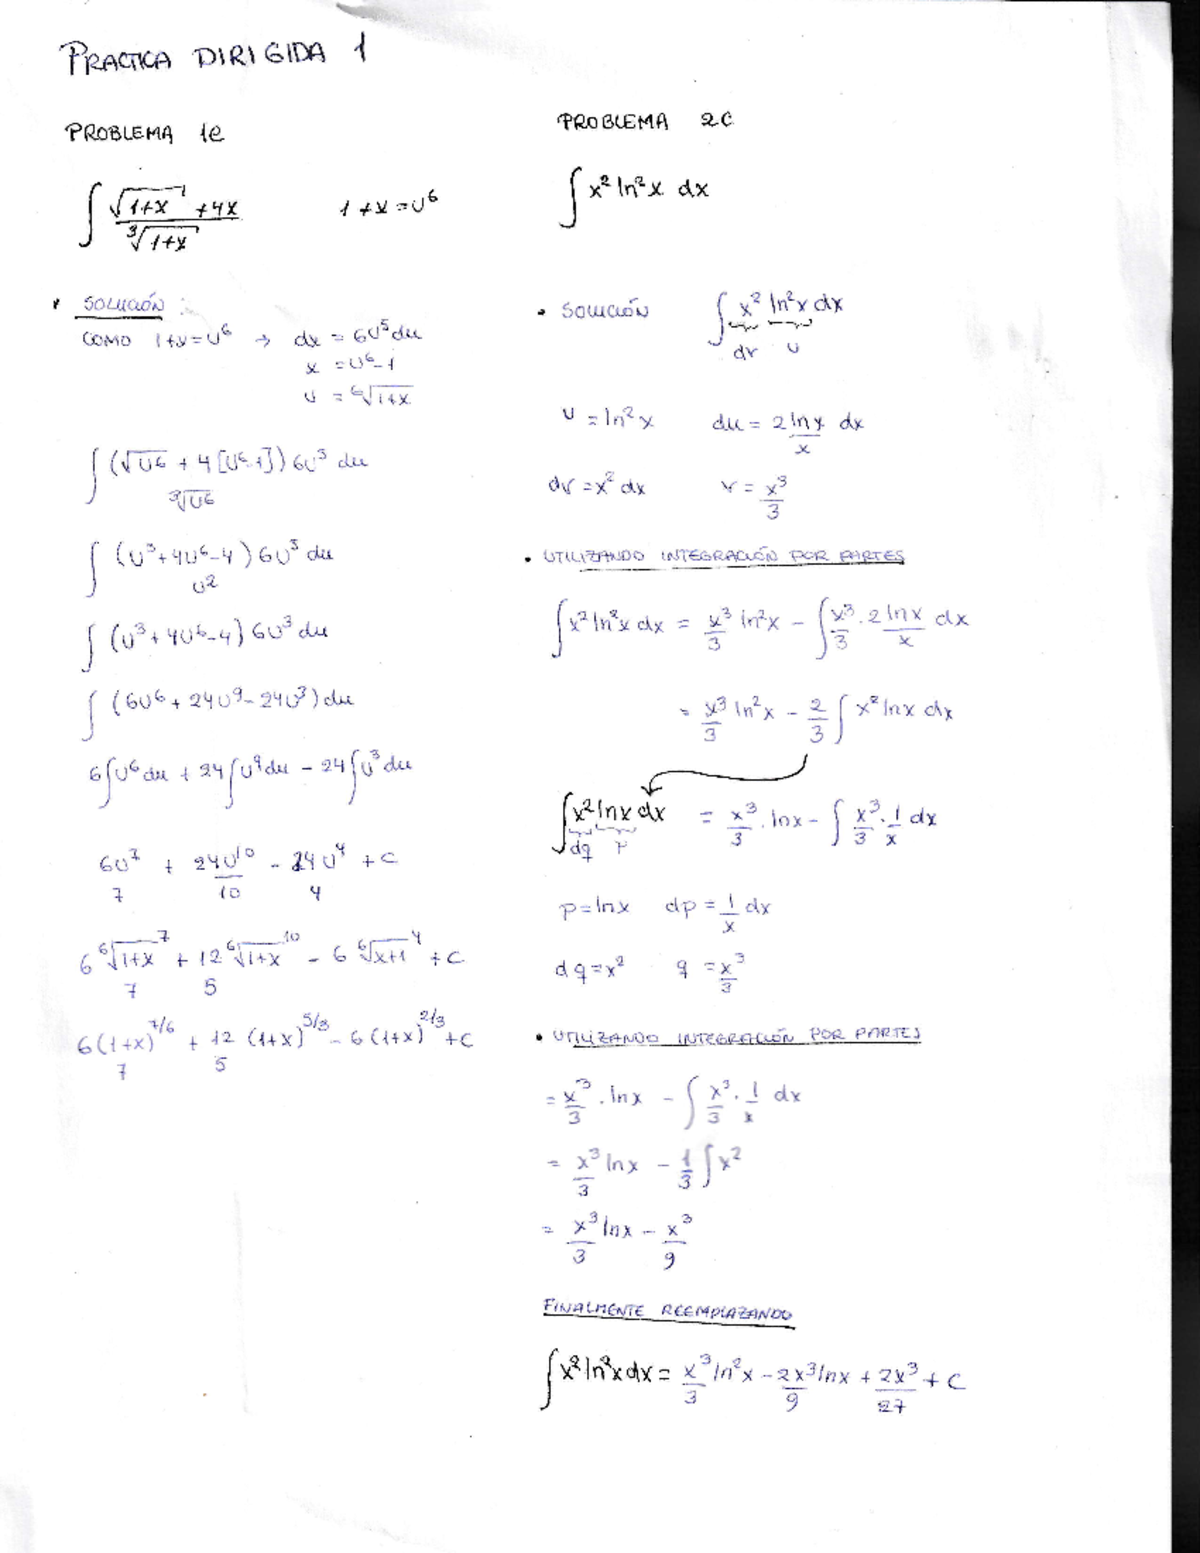 PRACTICA DIRIGIDA 1
PROBLEMA 1e
∫ (√(1+x) + 4x) / ∛(1+x)     1+x = u⁶
SOLUCIÓN :
COMO 1+x = u⁶ → dx = 6u⁵du
x = u⁶-1
u = ⁶√(1+x)
∫ (√u⁶ + 4[u⁶-1]) 6u³ du / ∛u⁶
∫ (u³+4u⁶-4) 6u⁵ du / u²
∫ (u³+4u⁶-4) 6u³ du
∫ (6u⁶ + 24u⁹ - 24u³) du
6∫u⁶du + 24∫u⁹du - 24∫u³du
6u⁷/7 + 24u¹⁰/10 - 24u⁴/4 + C
6 ⁶√(1+x)⁷ / 7 + 12 ⁶√(1+x)¹⁰ / 5 - 6 ⁶√(x+1)⁴ + C
6(1+x)^(7/6) / 7 + 12/5 (1+x)^(5/3) - 6(1+x)^(2/3) + C
PROBLEMA 2C
∫ x² ln²x dx
• SOLUCIÓN ∫ x² ln²x dx
dv u
u = ln²x     du = 2lnx/x dx
dv = x² dx     v = x³/3
• UTILIZANDO INTEGRACIÓN POR PARTES
∫x² ln²x dx = x³/3 ln²x - ∫ x³/3 . 2lnx/x dx
= x³/3 ln²x - 2/3 ∫ x² lnx dx
∫ x² lnx dx = x³/3 . lnx - ∫ x³/3 . 1/x dx
dq p
p = lnx     dp = 1/x dx
dq = x²     q = x³/3
• UTILIZANDO INTEGRACIÓN POR PARTES
= x³/3 . lnx - ∫ x³/3 . 1/x dx
= x³/3 lnx - 1/3 ∫x²
= x³/3 lnx - x³/9
FINALMENTE REEMPLAZANDO
∫x² ln²x dx = x³/3 ln²x - 2x³/9 lnx + 2x³/27 + C